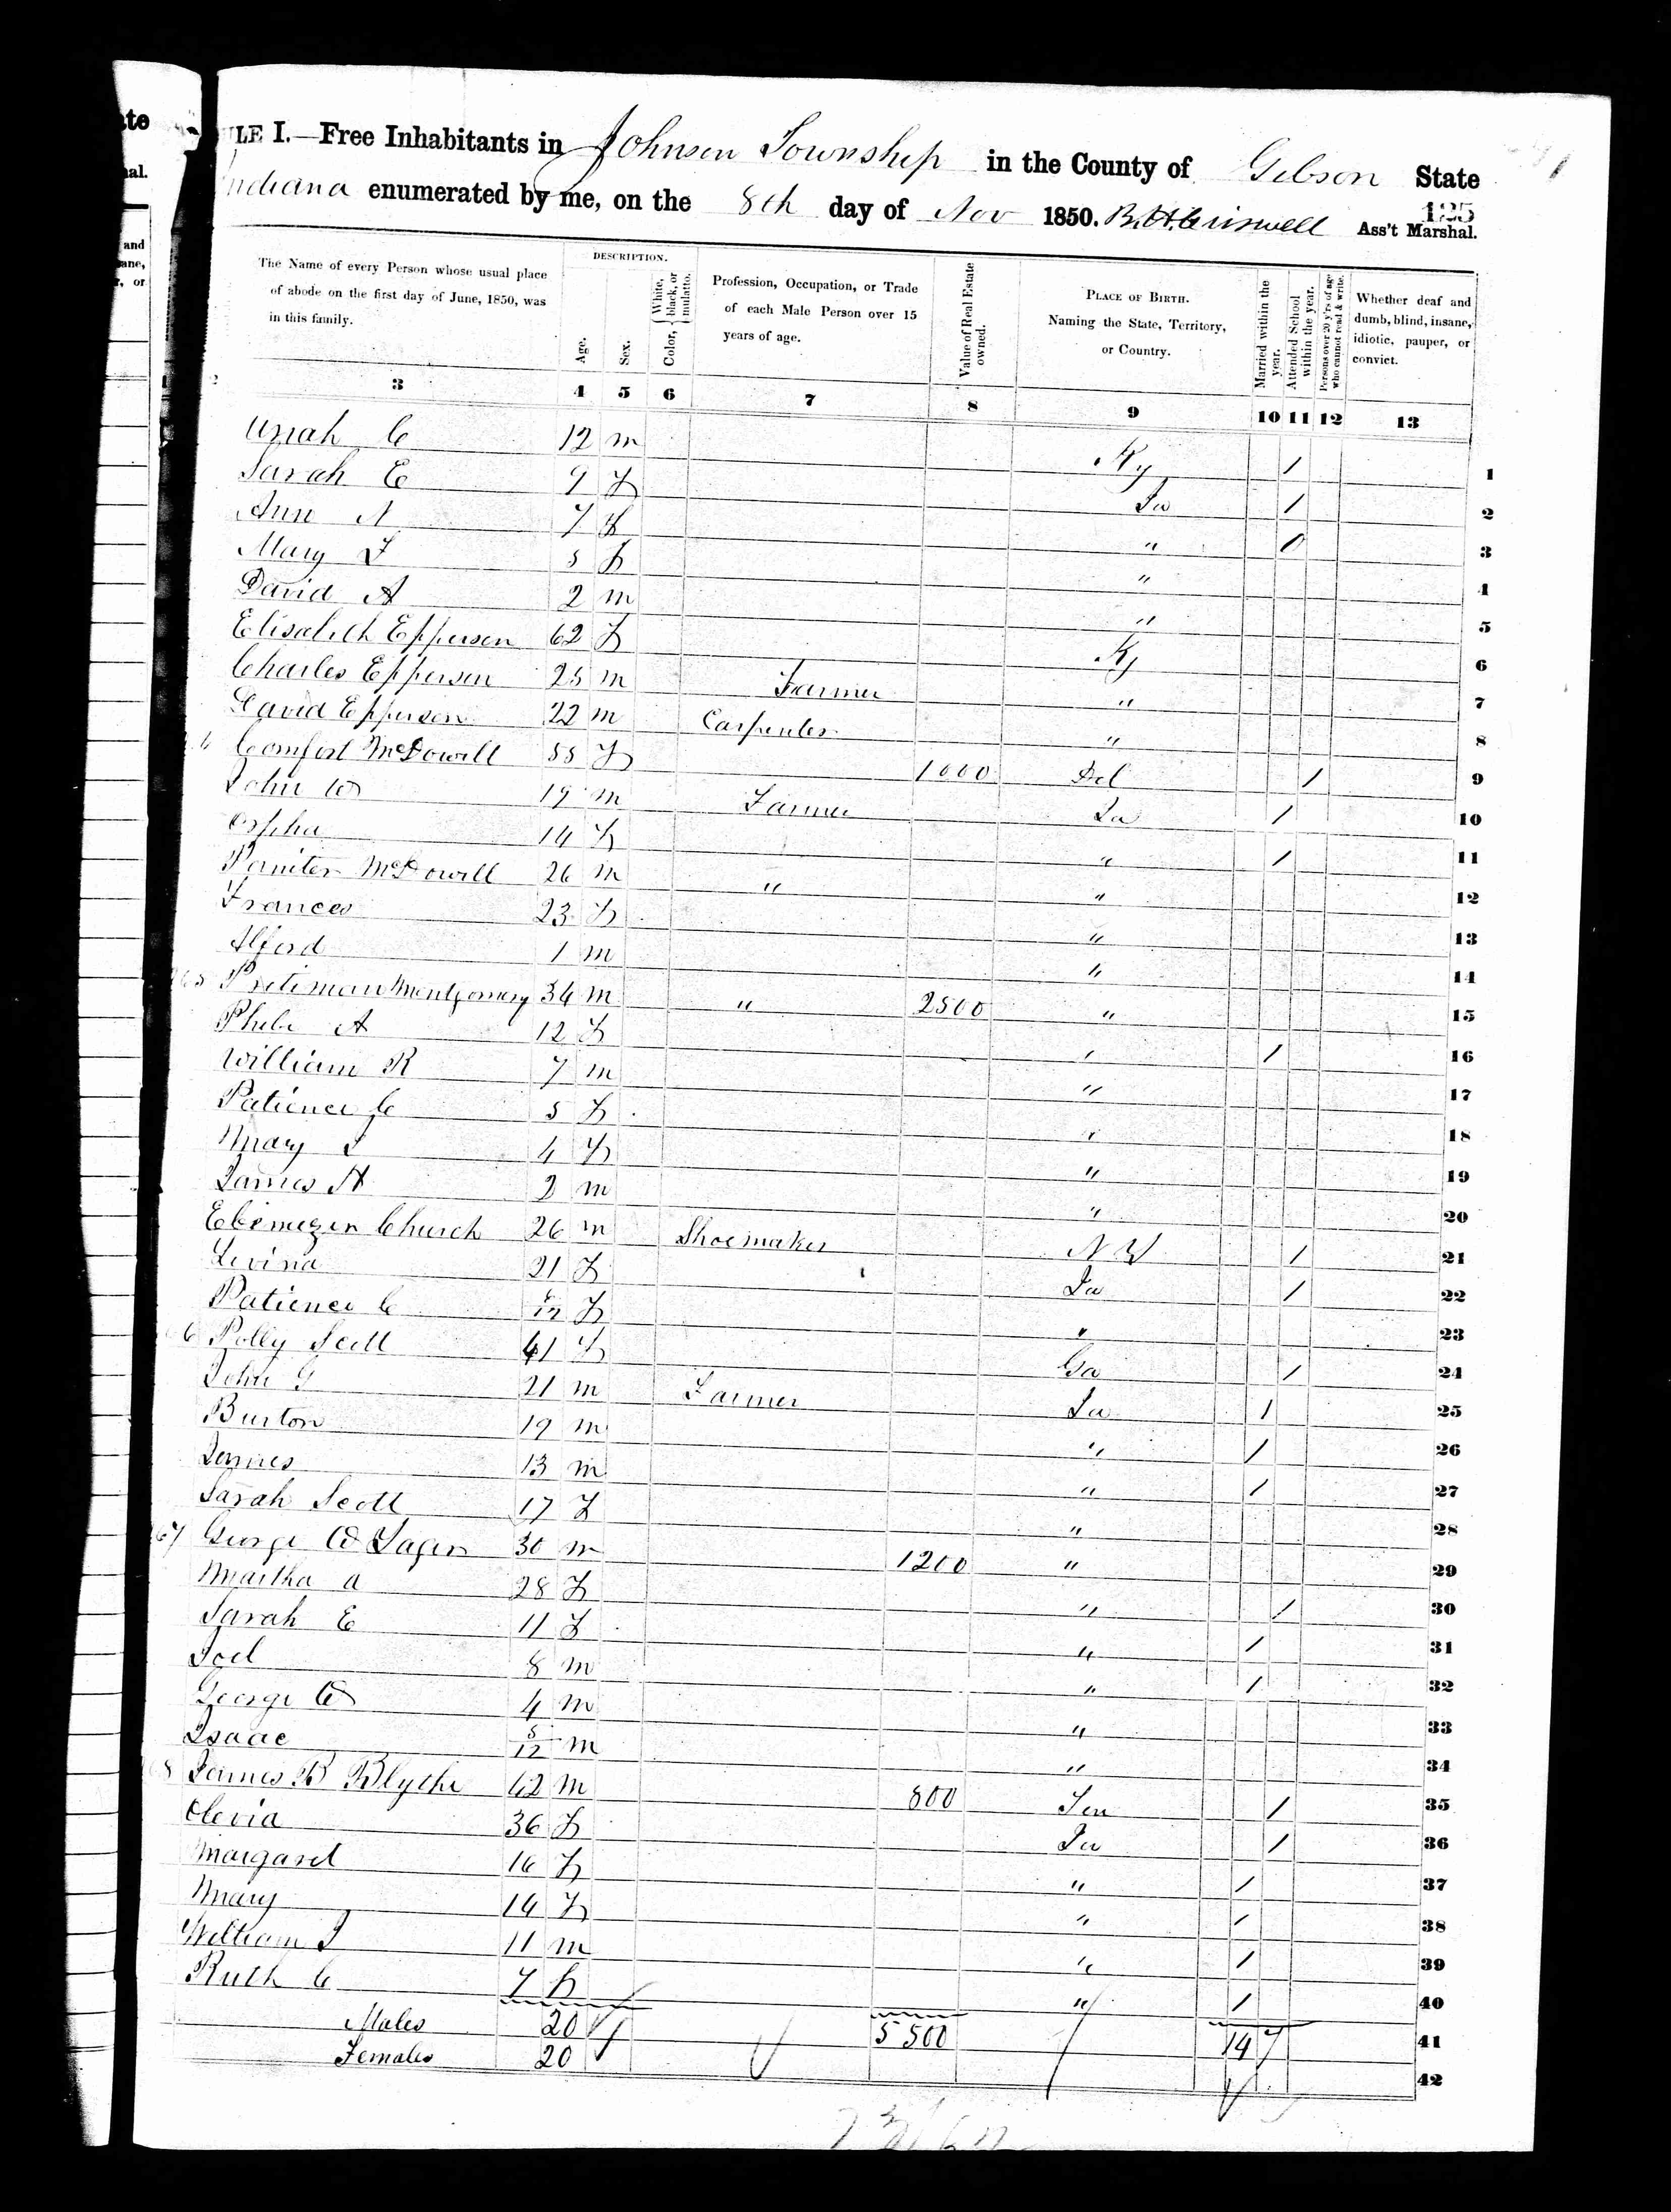 ate
LE I.—Free Inhabitants in Johnson Township in the County of Gibson State
Indiana enumerated by me, on the 8th day of Nov 1850. Ass't Marshal.
125
al.
and
ane,
, or
The Name of every Person whose usual place of abode on the first day of June, 1850, was in this family.
DESCRIPTION.
Age.
Sex.
Color, { White, black, or mulatto.
Profession, Occupation, or Trade of each Male Person over 15 years of age.
Value of Real Estate owned.
PLACE OF BIRTH. Naming the State, Territory, or Country.
Married within the year.
Attended School within the year.
Persons over 20 y'rs of age who cannot read & write.
Whether deaf and dumb, blind, insane, idiotic, pauper, or convict.
3 4 5 6 7 8 9 10 11 12 13
Uriah C 12 m Ky / 1
Sarah E 9 f Ia / 2
Ann 7 f " / 3
Mary 5 f " 4
David A 2 m " 5
Elisabeth Epperson 62 f Ky 6
Charles Epperson 25 m Farmer " 7
David Epperson 22 m Carpenter " 8
Comfort McDowill 55 f 1000 Del / 9
John W 19 m Farmer Ia / 10
Orpha 14 f " / 11
McDowill 26 m " " 12
Frances 23 f " 13
Alford 1 m " 14
Montgomery 34 m " 2500 " 15
Phebe A 12 f " / 16
William R 7 m " 17
Patience C 5 f " 18
Mary 4 f " 19
James A 2 m " 20
Ebenezer Church 26 m Shoemaker / 21
Levina 21 f Ia / 22
Patience C f " 23
6 Polly Scott 41 f Ga / 24
John G 21 m Farmer Ia / 25
Burton 19 m " / 26
James 13 m " / 27
Sarah Scott 17 f " 28
67 George W 30 m 1200 " 29
Martha A 28 f " / 30
Sarah E 11 f " / 31
Joel 8 m " / 32
George W 4 m " 33
Isaac 5/12 m " 34
8 James B Blythe 42 m 800 Ten / 35
Olevia 36 f Ia / 36
Margaret 16 f " / 37
Mary 14 f " / 38
William J 11 m " / 39
Ruth C 7 f " / 40
Males 20 5500 14 41
Females 20 42